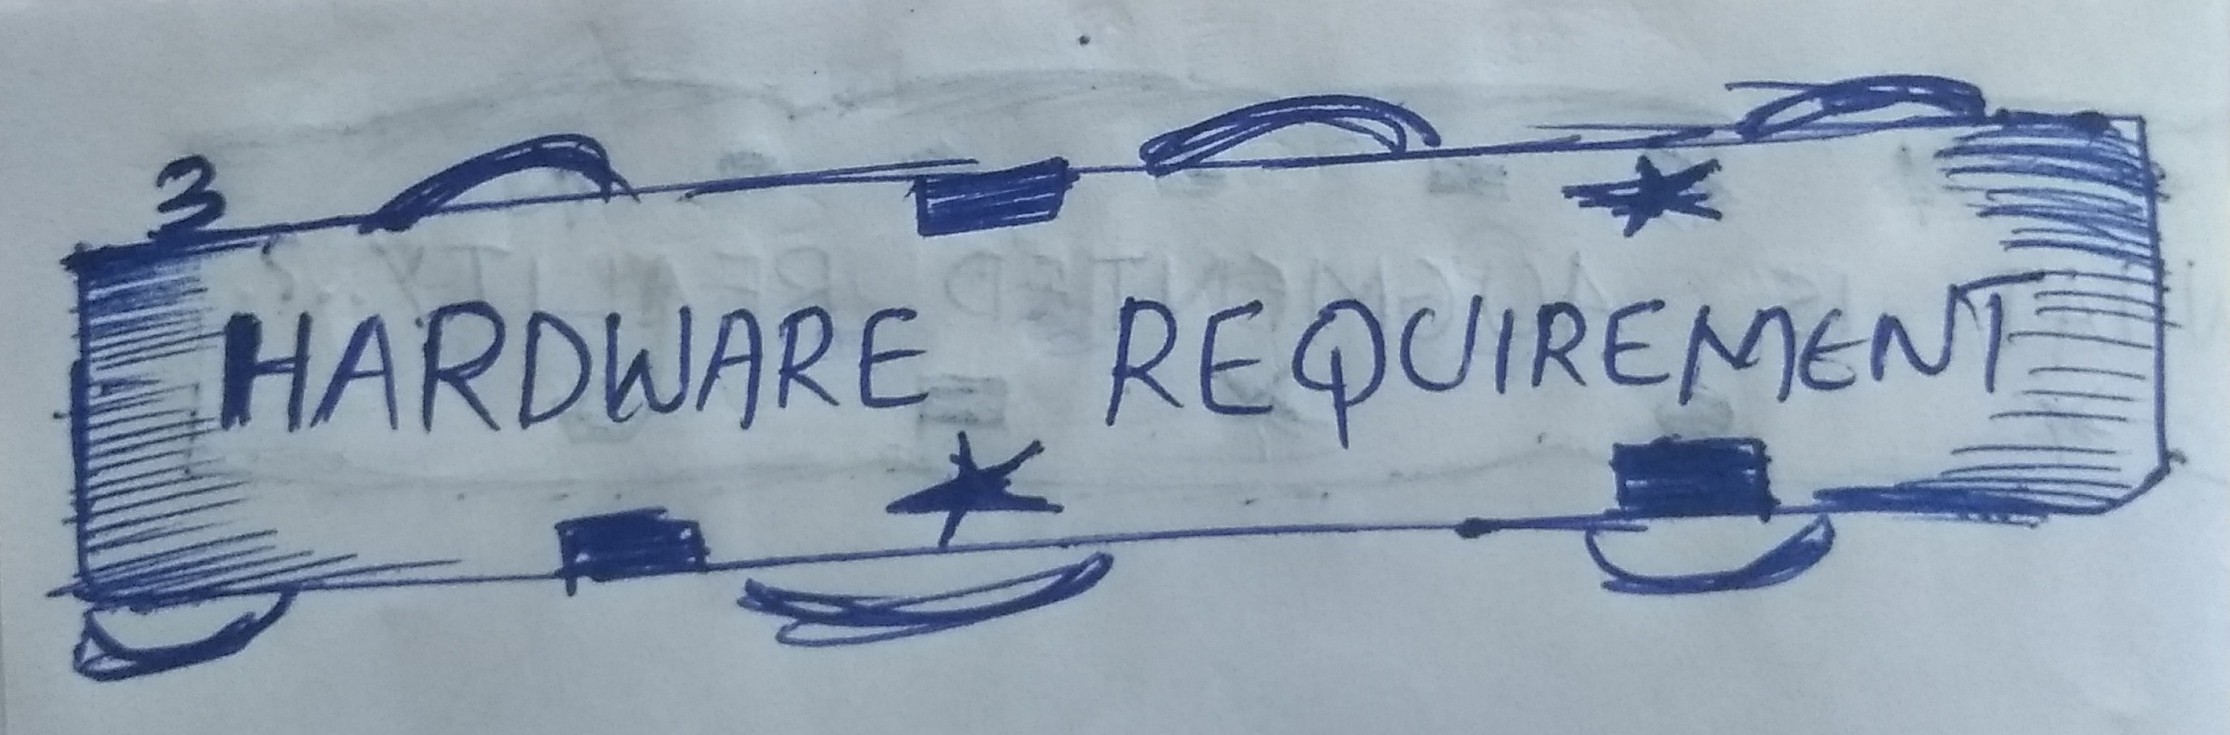 3
HARDWARE REQUIREMENT